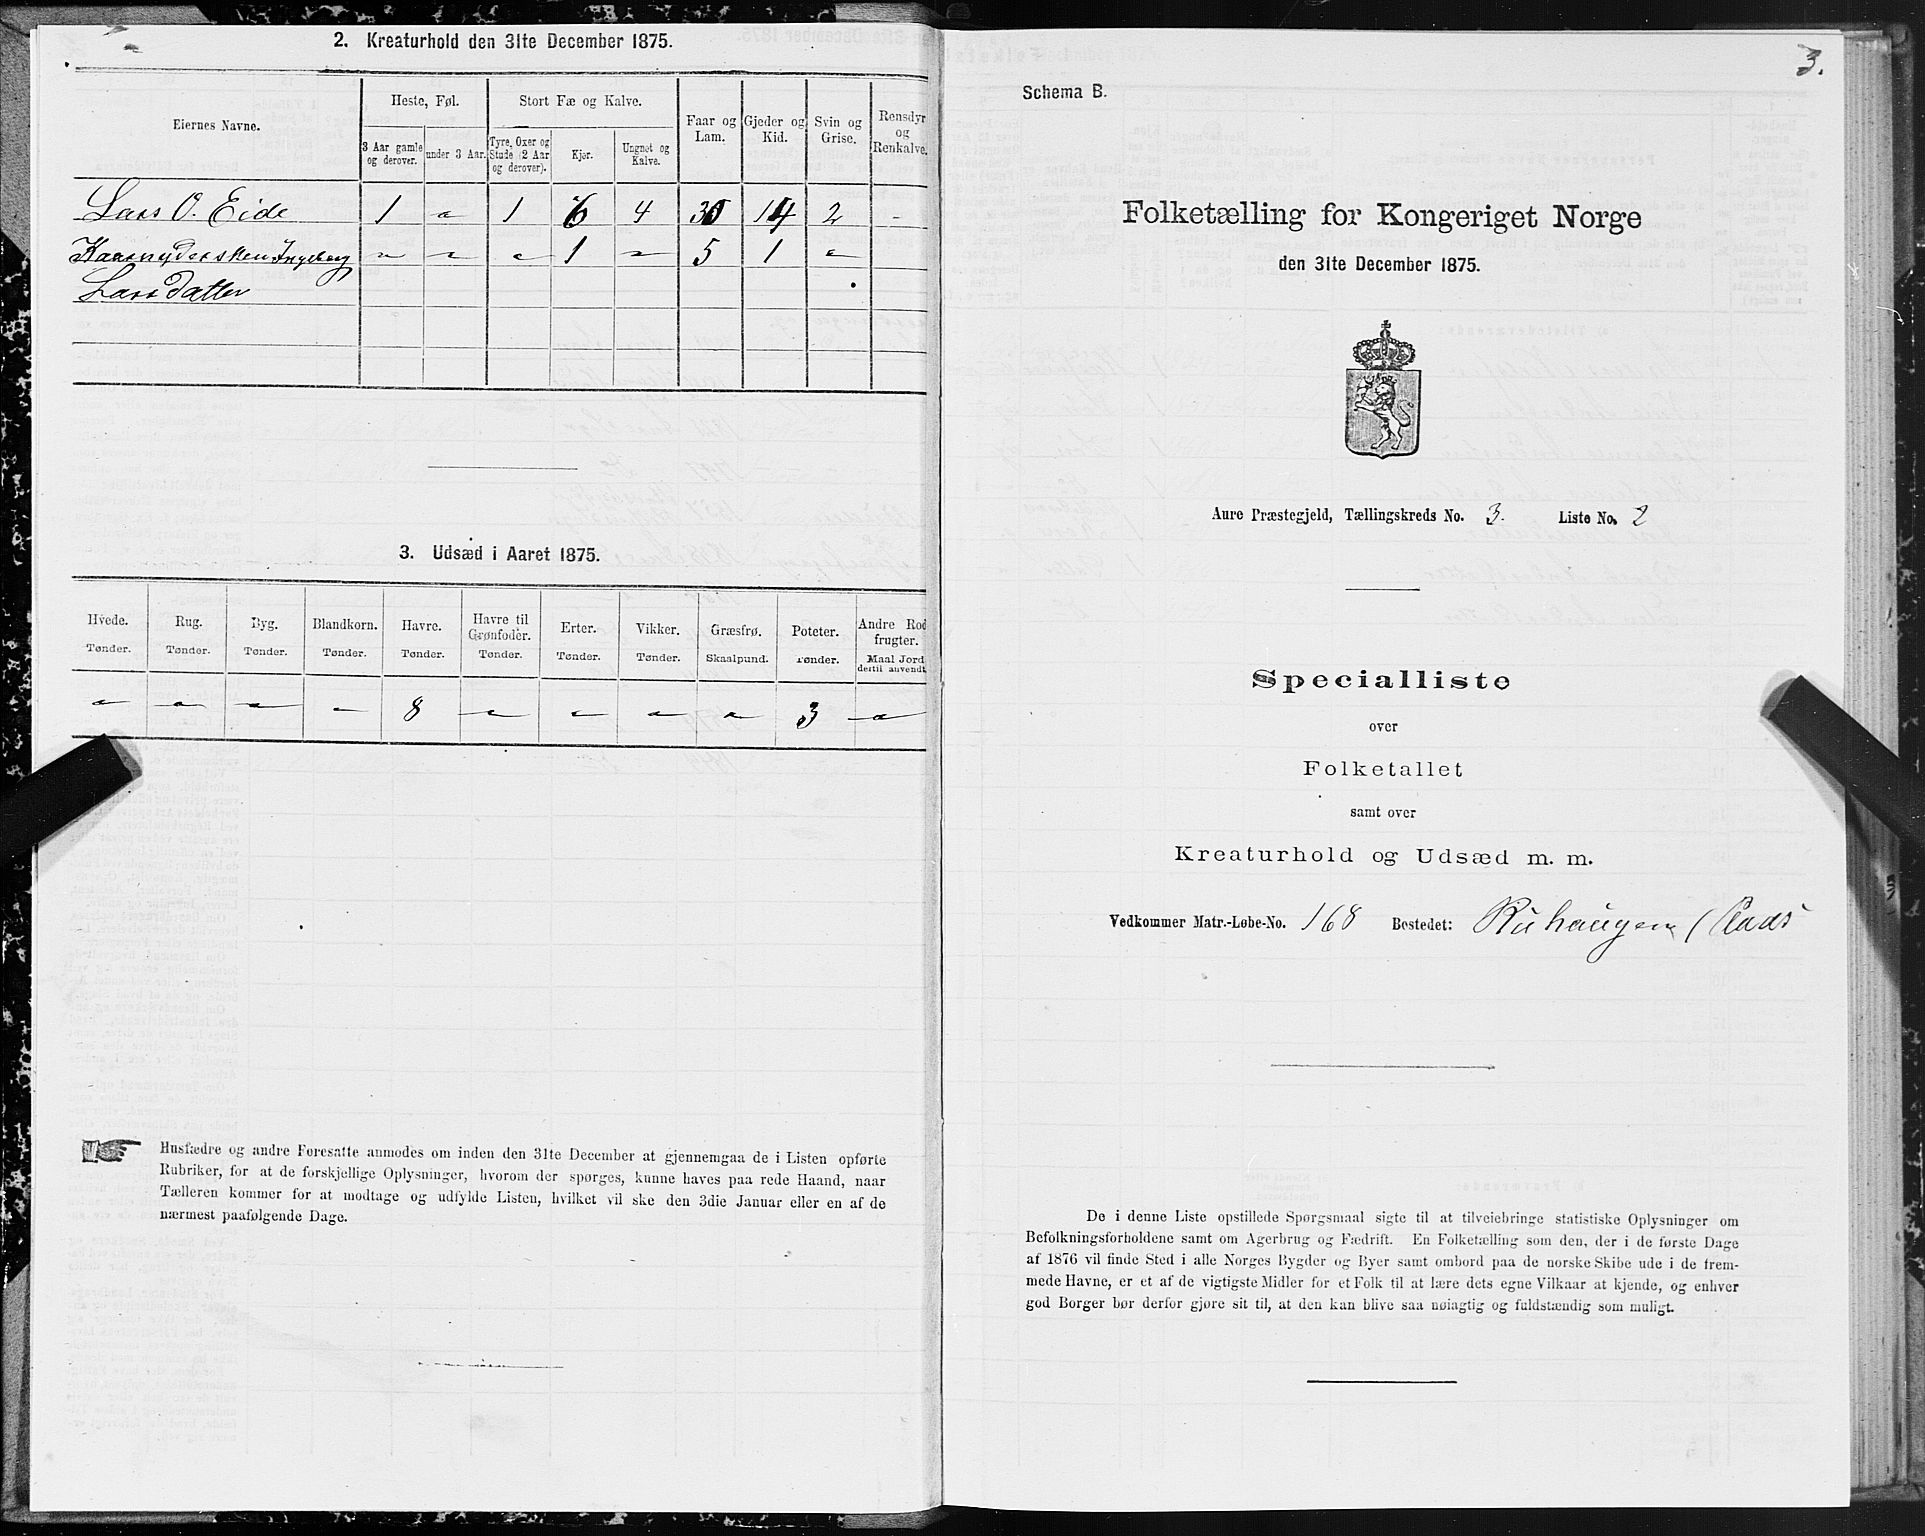 2. Kreaturhold den 31te December 1875.
Eiernes Navne.
Heste, Føl.
Stort Fæ og Kalve.
Faar og Lam.
Gjeder og Kid.
Svin og Grise.
Rensdyr og Renkalve.
3 Aar gamle og derover.
under 3 Aar.
Tyre, Oxer og Stude (2 Aar og derover).
Kjør.
Ungnet og Kalve.
Lars O. Eide 1 " 1 6 4 14 2 -
Ingeborg " " " 1 " 5 1 "
Larsdatter
3. Udsæd i Aaret 1875.
Hvede. Rug. Byg. Blandkorn. Havre. Havre til Grønfoder. Erter. Vikker. Græsfrø. Poteter. Andre Rodfrugter.
Tønder. Tønder. Tønder. Tønder. Tønder. Tønder. Tønder. Tønder. Skaalpund. Tønder. Maal Jord dertil anvendt.
" " " " 8 " " " " 3 "
Husfædre og andre Foresatte anmodes om inden den 31te December at gjennemgaa de i Listen opførte
Rubriker, for at de forskjellige Oplysninger, hvorom der spørges, kunne haves paa rede Haand, naar
Tælleren kommer for at modtage og udfylde Listen, hvilket vil ske den 3die Januar eller en af de
nærmest paafølgende Dage.
3.
Schema B.
Folketælling for Kongeriget Norge
den 31te December 1875.
Aure Præstegjeld, Tællingskreds No. 3. Liste No. 2
Specialliste
over
Folketallet
samt over
Kreaturhold og Udsæd m. m.
Vedkommer Matr.-Løbe-No. 168 Bostedet: Ruhaugen (Plads
De i denne Liste opstillede Spørgsmaal sigte til at tilveiebringe statistiske Oplysninger om
Befolkningsforholdene samt om Agerbrug og Fædrift. En Folketælling som den, der i de første Dage
af 1876 vil finde Sted i alle Norges Bygder og Byer samt ombord paa de norske Skibe ude i de frem-
mede Havne, er et af de vigtigste Midler for et Folk til at lære dets egne Vilkaar at kjende, og enhver
god Borger bør derfor gjøre sit til, at den kan blive saa nøiagtig og fuldstændig som muligt.